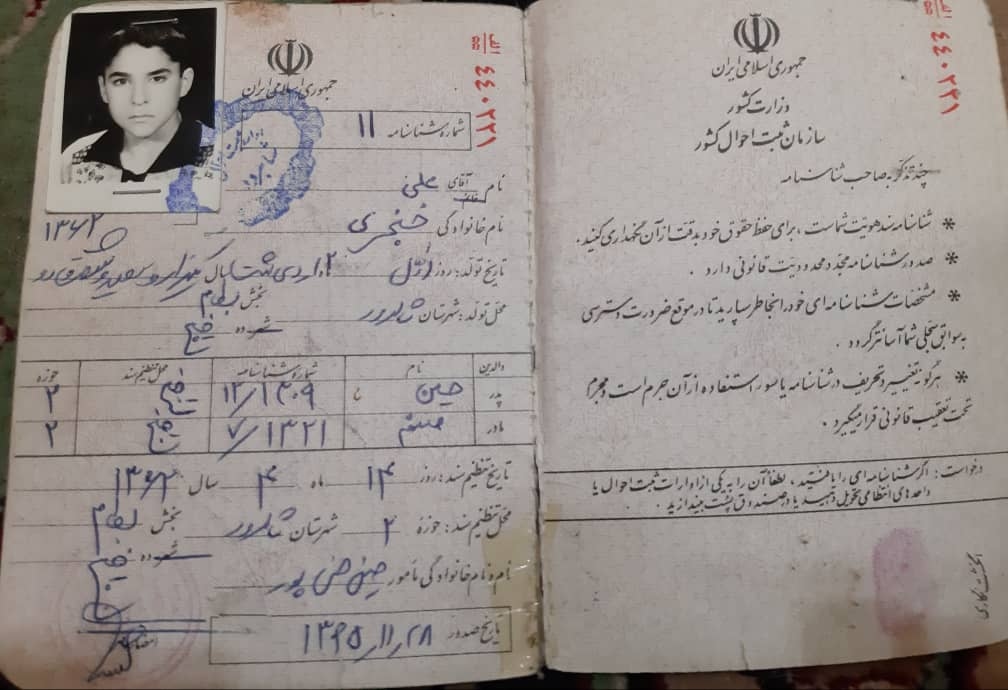 جمهوری اسلامی ایران
وزارت کشور
سازمان ثبت احوال کشور
چند تذکر به صاحب شناسنامه
* شناسنامه سند هویت شماست ، برای حفظ حقوق خود بدقت از آن نگهداری کنید .
* صدور شناسنامه مجدد محدودیت قانونی دارد .
* مشخصات شناسنامه ای خود را بخاطر بسپارید تا در موقع ضرورت دسترسی
به سوابق سجلی شما آسانتر گردد .
* هرگونه تغییر و تحریف در شناسنامه یا سوء استفاده از آن جرم است و مجرم
تحت تعقیب قانونی قرار میگیرد .
درخواست : اگر شناسنامه ای را یافتید ، لطفاً آن را به یکی از ادارات ثبت احوال یا
واحدهای انتظامی تحویل دهید یا در صندوق پست بیندازید .
انگشت نگاری
الف ۴۴۰۲۲۱
جمهوری اسلامی ایران
شماره شناسنامه ۱۱
نام آقای علی
نام خانوادگی خنجری
۱۳۶۲
تاریخ تولد : روز اول
محل تولد : شهرستان شاهرود بخش بسطام
شهر ده
والدین نام شماره شناسنامه محل تنظیم سند حوزه
پدر حسین ۱۲/۱۳۰۹ ۲
مادر ۷/۱۳۲۱ ۲
تاریخ تنظیم سند : روز ۱۴ ماه ۴ سال ۱۳۶۲
محل تنظیم سند : حوزه ۲ شهرستان شاهرود بخش بسطام
شهر ده
نام و نام خانوادگی مامور
تاریخ صدور ۱۳۹۵,۱۱,۲۸
امضاء